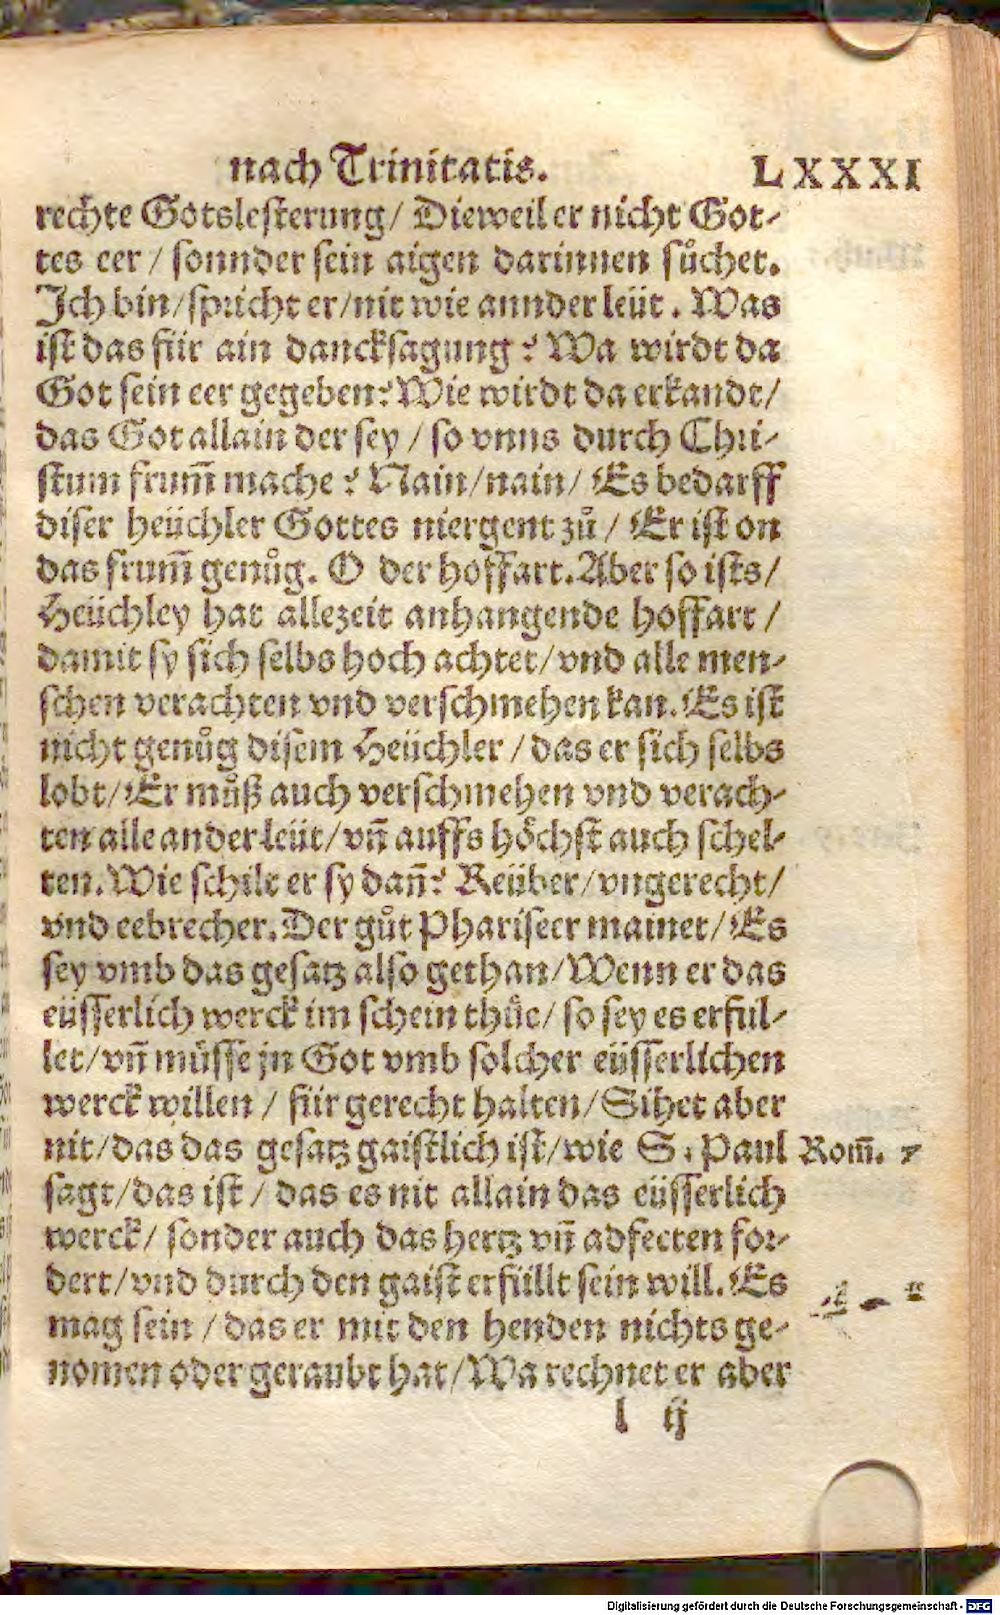 nach Trinitatis. LXXXI
rechte Gotslesterung/ Dieweil er nicht Got-
tes eer / sonnder sein aigen darinnen sůchet.
Ich bin/spricht er/nit wie annder leüt. Was
ist das für ain dancksagung? Wa wirdt da
Got sein eer gegeben? Wie wirdt da erkandt/
das Got allain der sey / so vnns durch Chri-
stum frum̃ mache? Nain/nain/ Es bedarff
diser heüchler Gottes niergent zů / Er ist on
das frum̃ genůg. O der hoffart. Aber so ists/
Heüchley hat allezeit anhangende hoffart /
damit sy sich selbs hoch achtet/vnd alle men-
schen verachten vnd verschmehen kan. Es ist
nicht genůg disem Heüchler / das er sich selbs
lobt/Er můß auch verschmehen vnd verach-
ten alle ander leüt/vñ auffs höchst auch schel-
ten. Wie schilt er sy dañ? Reüber/vngerecht/
vnd eebrecher. Der gůt Phariseer mainet/Es
sey vmb das gesatz also gethan/Wenn er das
eüsserlich werck im schein thůe/ so sey es erfül-
let/vñ müsse jn Got vmb solcher eüsserlichen
werck willen / für gerecht halten/Sihet aber
nit/das das gesatz gaistlich ist/wie S. Paul Rom̃. 7
sagt/das ist / das es nit allain das eüsserlich
werck/ sonder auch das hertz vñ adfecten for-
dert/vnd durch den gaist erfüllt sein will. Es
mag sein / das er mit den henden nichts ge-
nomen oder geraubt hat/Wa rechnet er aber
l ij
Digitalisierung gefördert durch die Deutsche Forschungsgemeinschaft - DFG